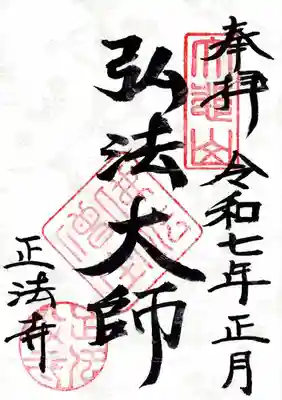 奉拝 令和七年正月
弘法大師
正法寺